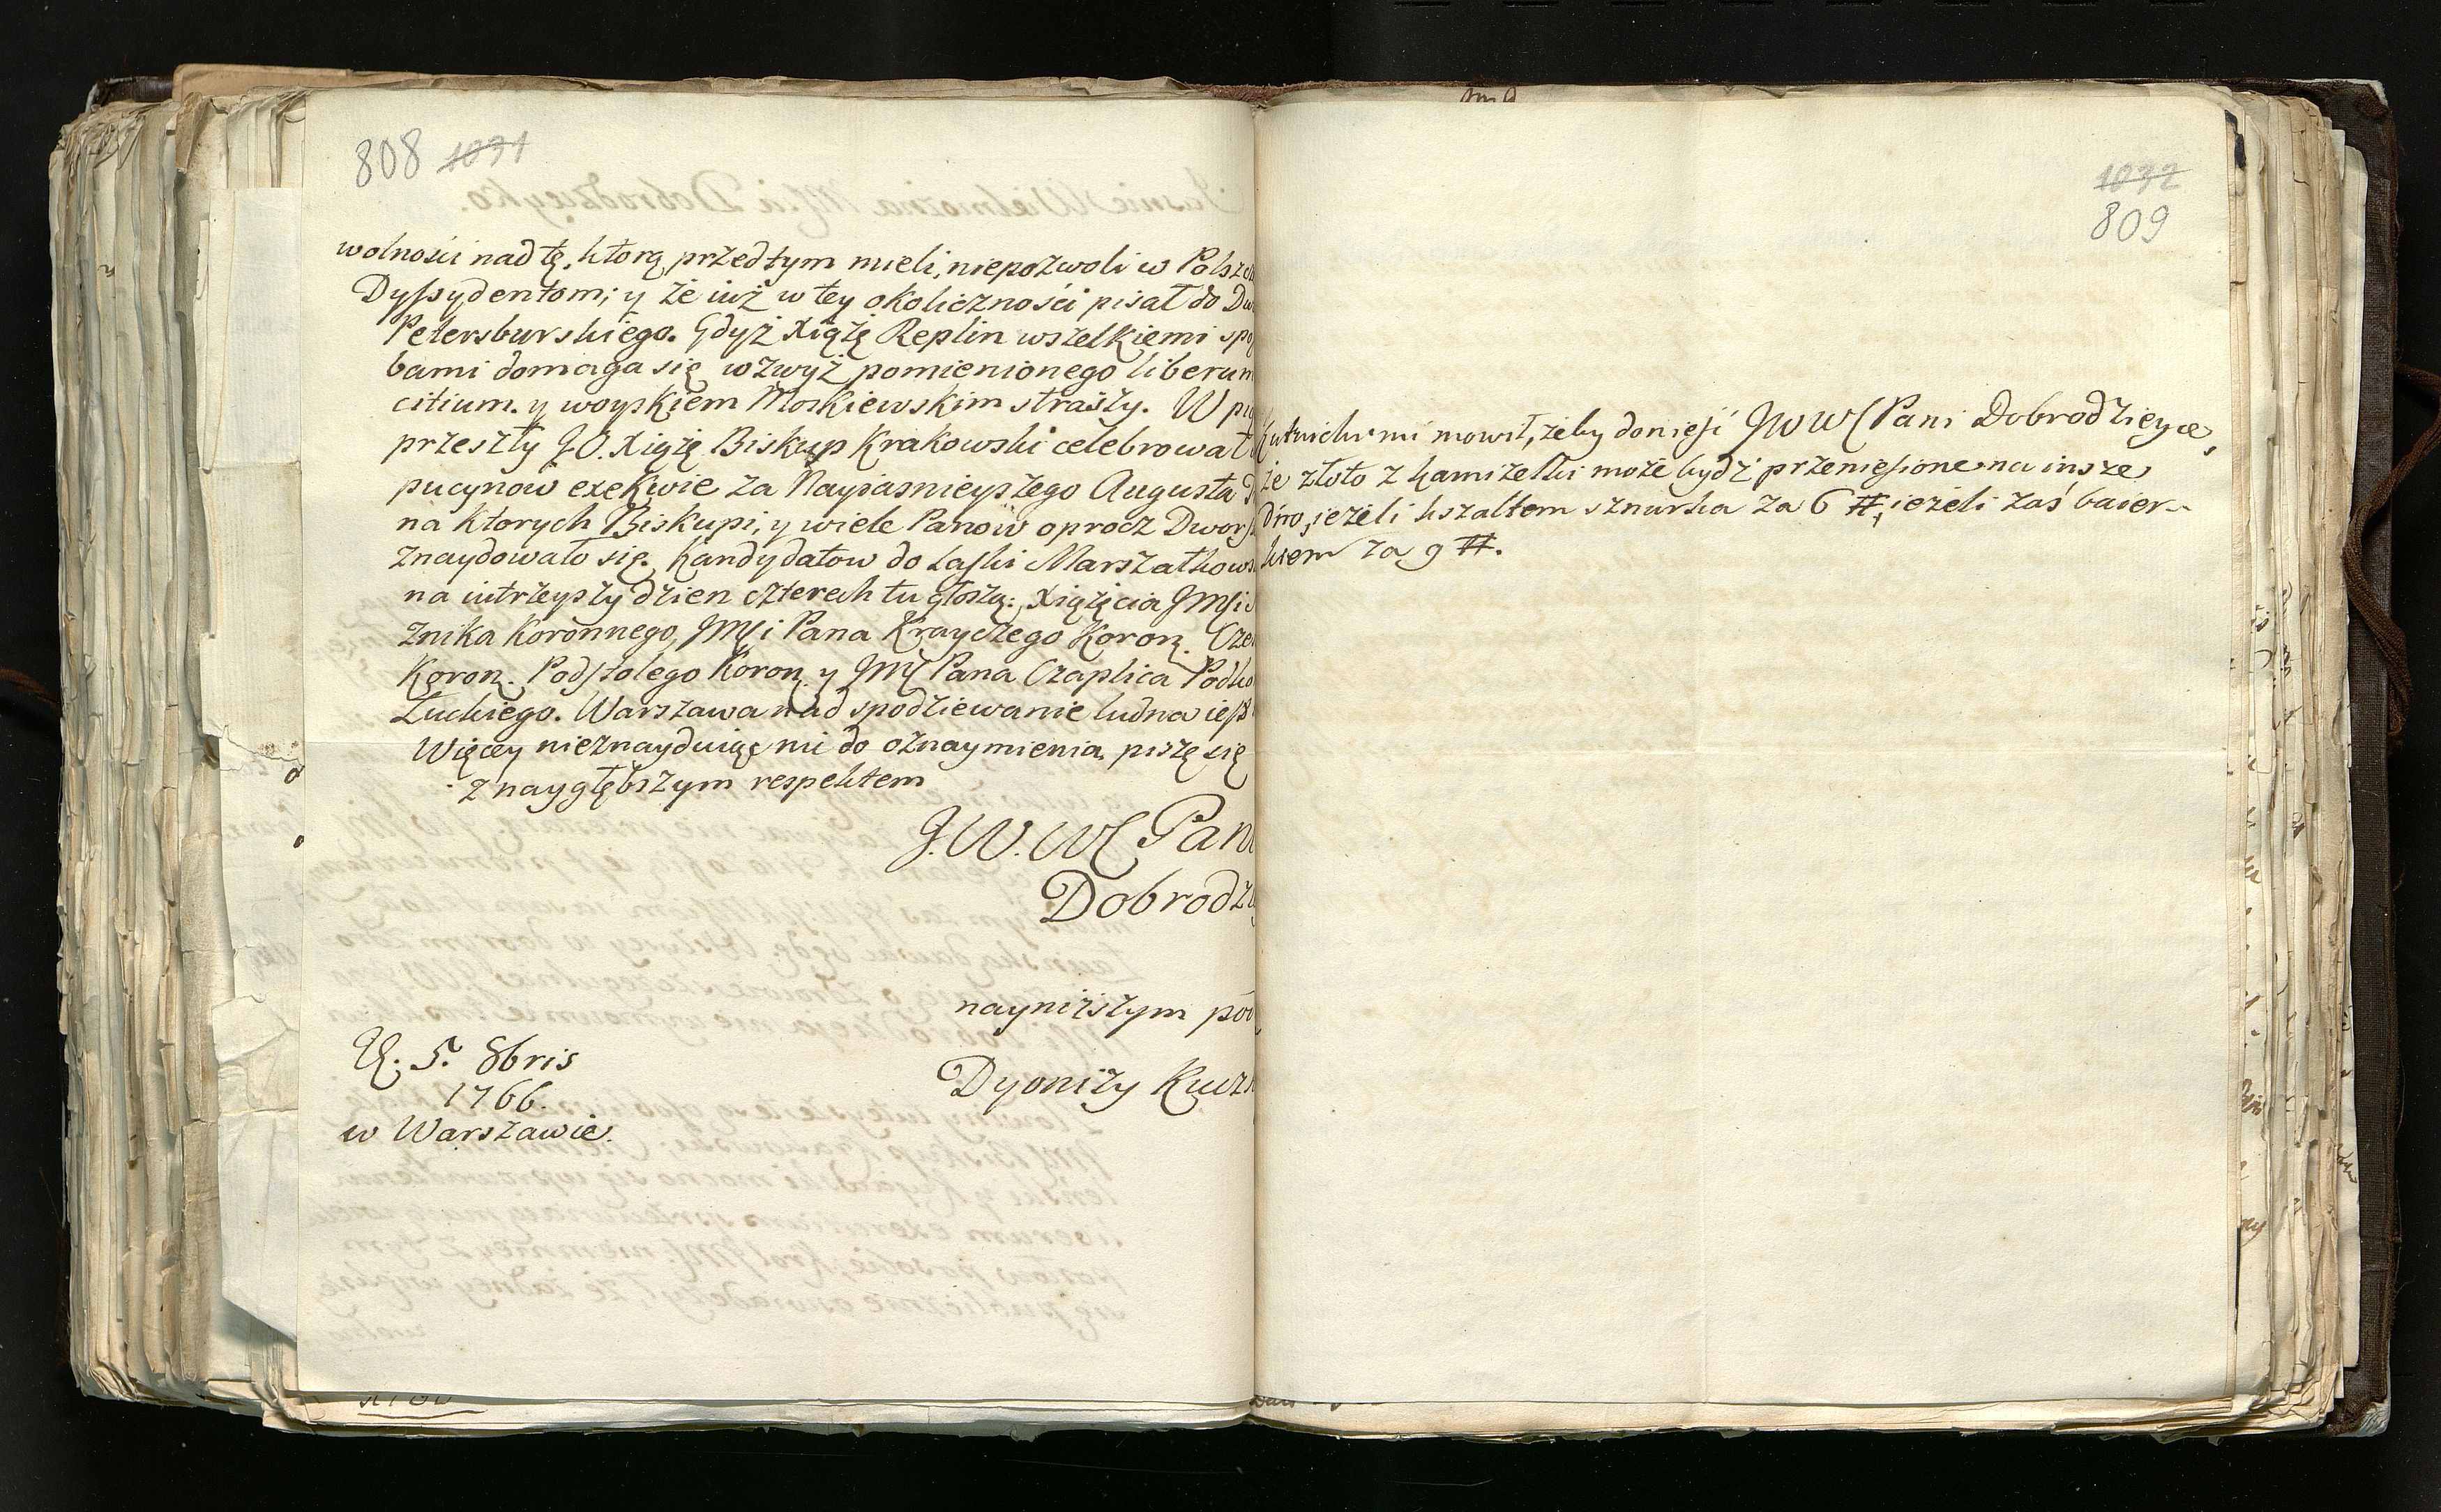 808 1031
wolności nad tę, ktorą przedtym mieli, niepozwoli w Polszc
Dyssydentom; y że iuż w tey okoliczności pisał do Dw
Petersburskiego. Gdyż Xiążę Replin wszelkiemi spo
bami domaga się wzwyż pomienionego liberum
citium. y woyskiem Moskiewskim straszy. W pią
przeszły J.O. Xiążę Biskup Krakowski celebrował
pucynow exekwie za Nayjasnieyszego Augusta
na ktorych Biskupi, y wiele Panow oprocz Dwors
znaydowało się. Kandydatow do Laski Marszałkows
na iutrzeyszy dzien czterech tu głoszą: Xiążęcia JMci
znika Koronnego, JMci Pana Krayczego Koron. Cze
Koron. Podstolego Koron. y JMC Pana Czaplica Podko
Łuckiego. Warszawa nad spodziewanie ludna iest
Więcey nieznayduiąc nic do oznaymienia, piszę się
z naygłębszym respektem
J.W.WC Pani
Dobrodzi
nayniższym pod
Dyonizy Kucz
D. 5. 8bris
1766.
w Warszawie.
1032
809
mi mowił, żeby doniesć JWWC Pani Dobrodzieyce,
że złoto z kamizelki może bydź przeniesione na insze
dno, ieżeli kształtem sznurka za 6 #, ieżeli zaś baier-
kiem za 9 #.